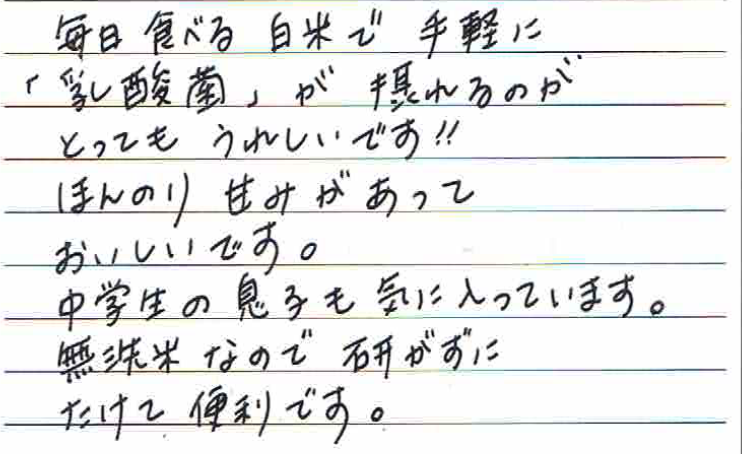 毎日食べる白米で手軽に
「乳酸菌」が摂れるのが
とってもうれしいです!!
ほんのり甘みがあって
おいしいです。
中学生の息子も気に入っています。
無洗米なので研がずに
たけて便利です。